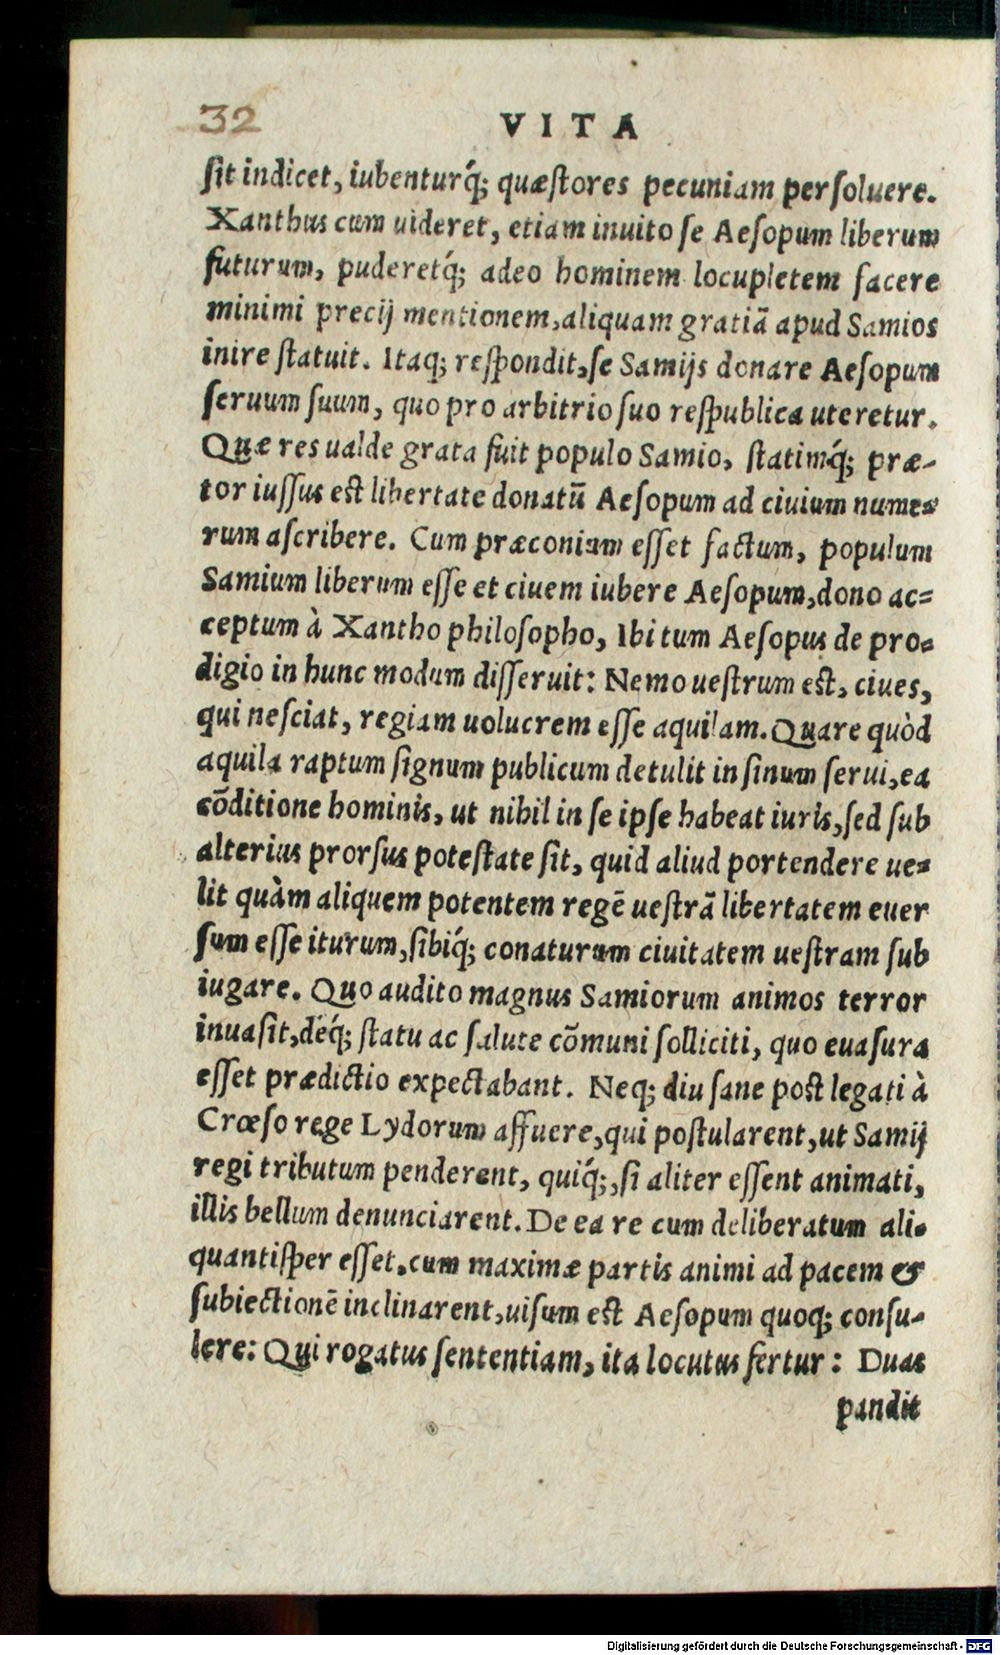 32
VITA
ſit indicet, iubenturq́; quæſtores pecuniam perſoluere.
Xanthus cum uideret, etiam inuito ſe Aeſopum liberum
futurum, puderetq́; adeo hominem locupletem facere
minimi precij mentionem, aliquam gratiã apud Samios
inire ſtatuit. Itaq; reſpondit, ſe Samijs donare Aeſopum
ſeruum ſuum, quo pro arbitrio ſuo reſpublica uteretur.
Quæ res ualde grata fuit populo Samio, ſtatimq́; præ-
tor iuſſus eſt libertate donatũ Aeſopum ad ciuium nume=
rum aſcribere. Cum præconium eſſet factum, populum
Samium liberum eſſe et ciuem iubere Aeſopum, dono ac=
ceptum à Xantho philoſopho, Ibi tum Aeſopus de pro=
digio in hunc modum diſſeruit: Nemo ueſtrum eſt, ciues,
qui neſciat, regiam uolucrem eſſe aquilam. Quare quòd
aquila raptum ſignum publicum detulit in ſinum ſerui, ea
cõditione hominis, ut nihil in ſe ipſe habeat iuris, ſed ſub
alterius prorſus poteſtate ſit, quid aliud portendere ue=
lit quàm aliquem potentem regẽ ueſtrã libertatem euer
ſum eſſe iturum, ſibiq́; conaturum ciuitatem ueſtram ſub
iugare. Quo audito magnus Samiorum animos terror
inuaſit, deq́; ſtatu ac ſalute cõmuni ſolliciti, quo euaſura
eſſet prædictio expectabant. Neq; diu ſane poſt legati à
Crœſo rege Lydorum affuere, qui poſtularent, ut Samij
regi tributum penderent, quiq́;, ſi aliter eſſent animati,
illis bellum denunciarent. De ea re cum deliberatum ali=
quantiſper eſſet, cum maximæ partis animi ad pacem &
ſubiectionẽ inclinarent, uiſum eſt Aeſopum quoq; conſu-
lere: Qui rogatus ſententiam, ita locutus fertur: Duas
pandit
Digitalisierung gefördert durch die Deutsche Forschungsgemeinschaft - DFG